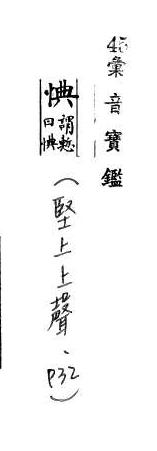 45彙音寶鑑
㥏
謂慙
曰㥏
（堅上上聲、P32）